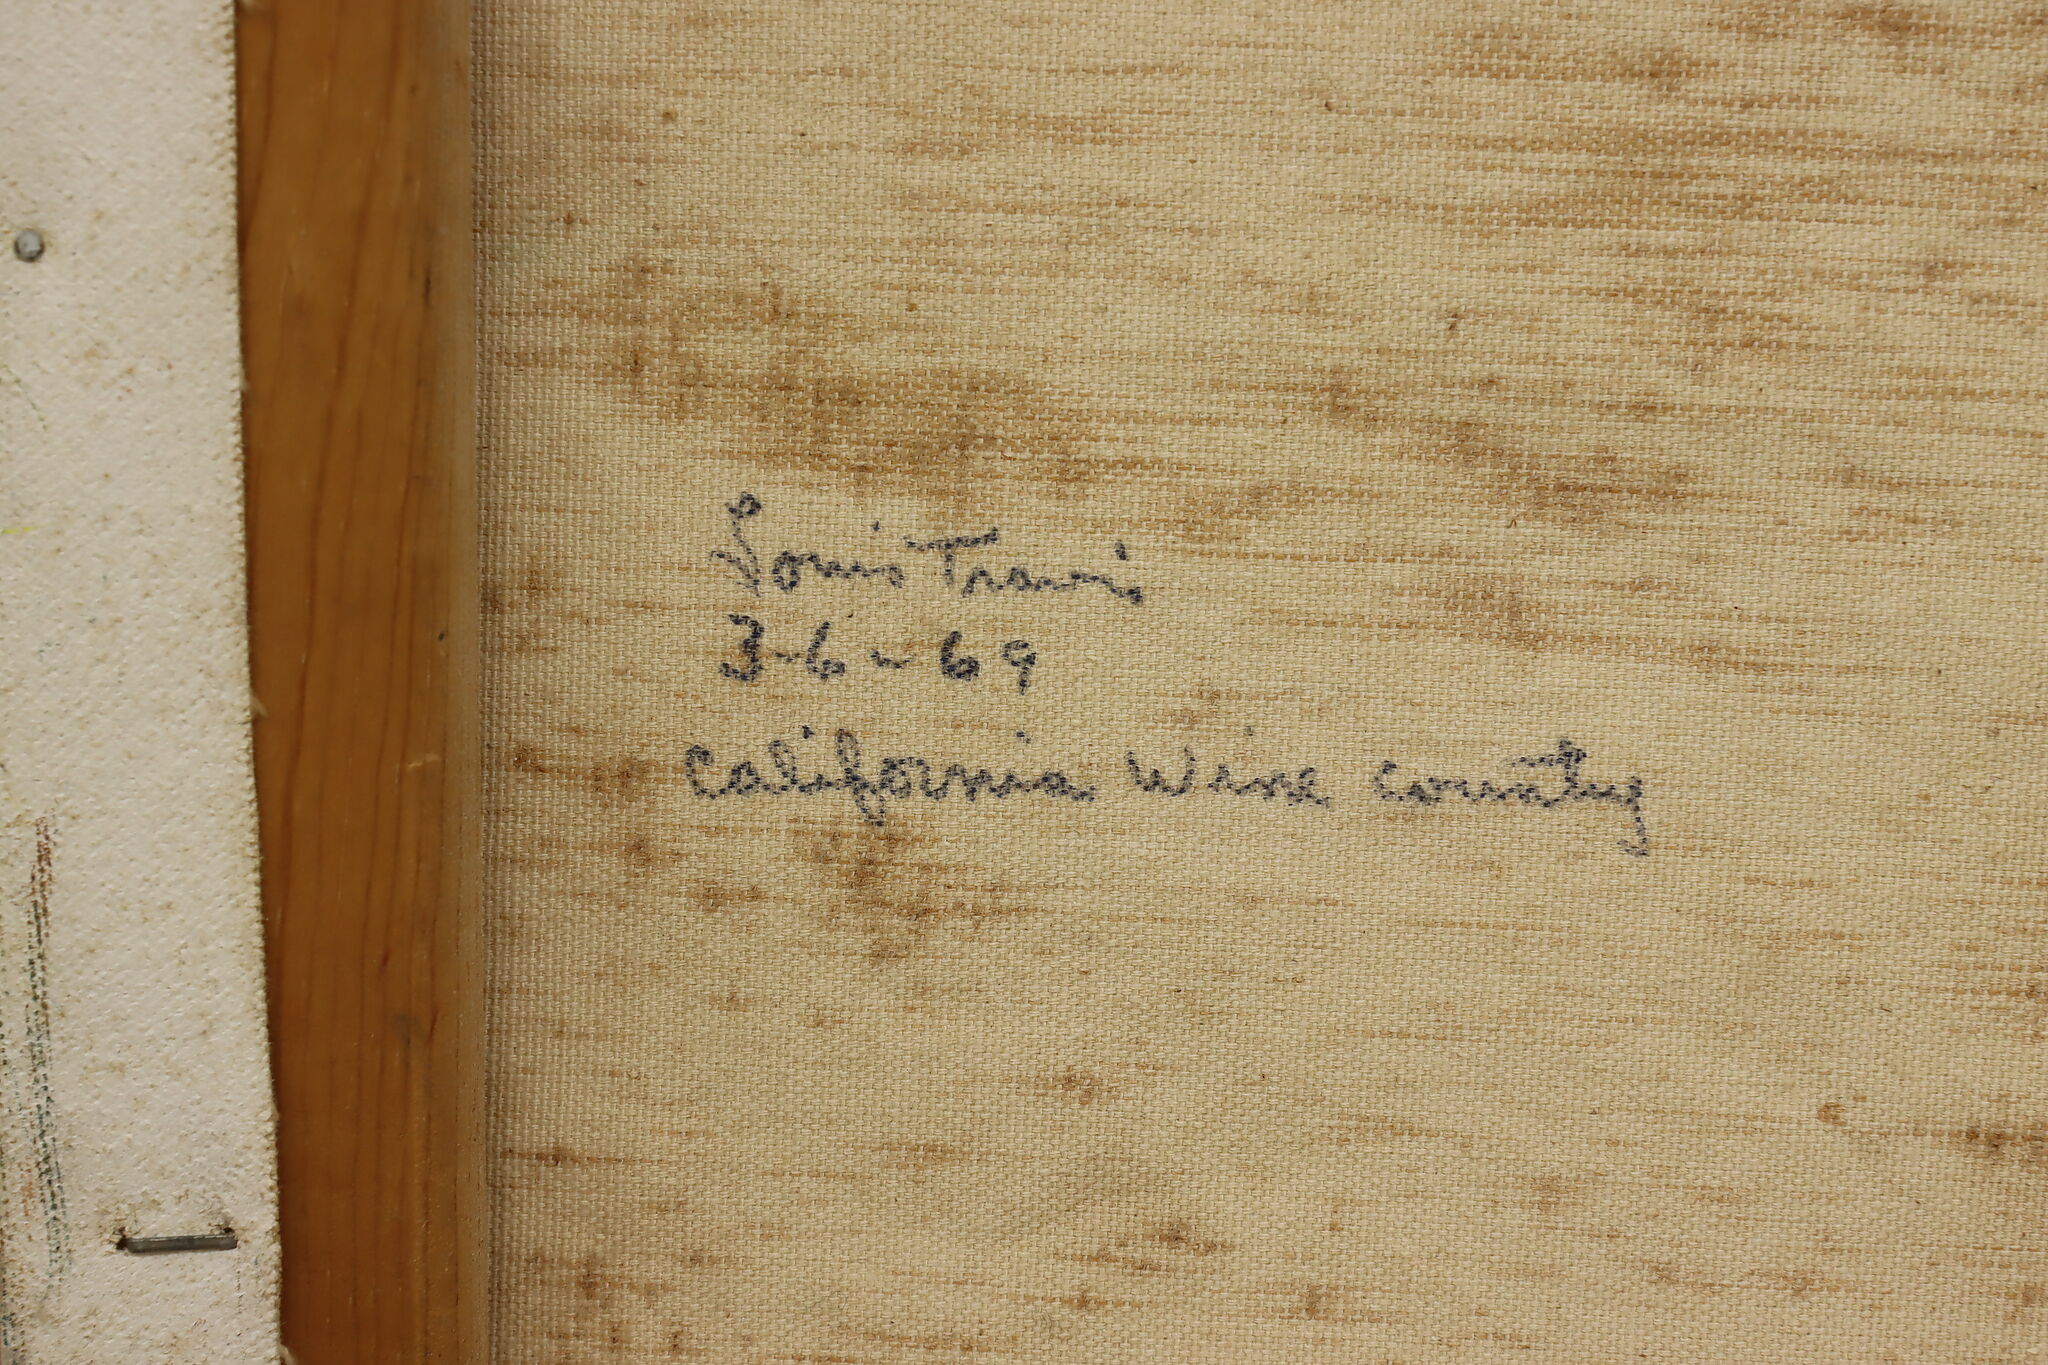 Louis Travis
3-6-69
California Wine Country